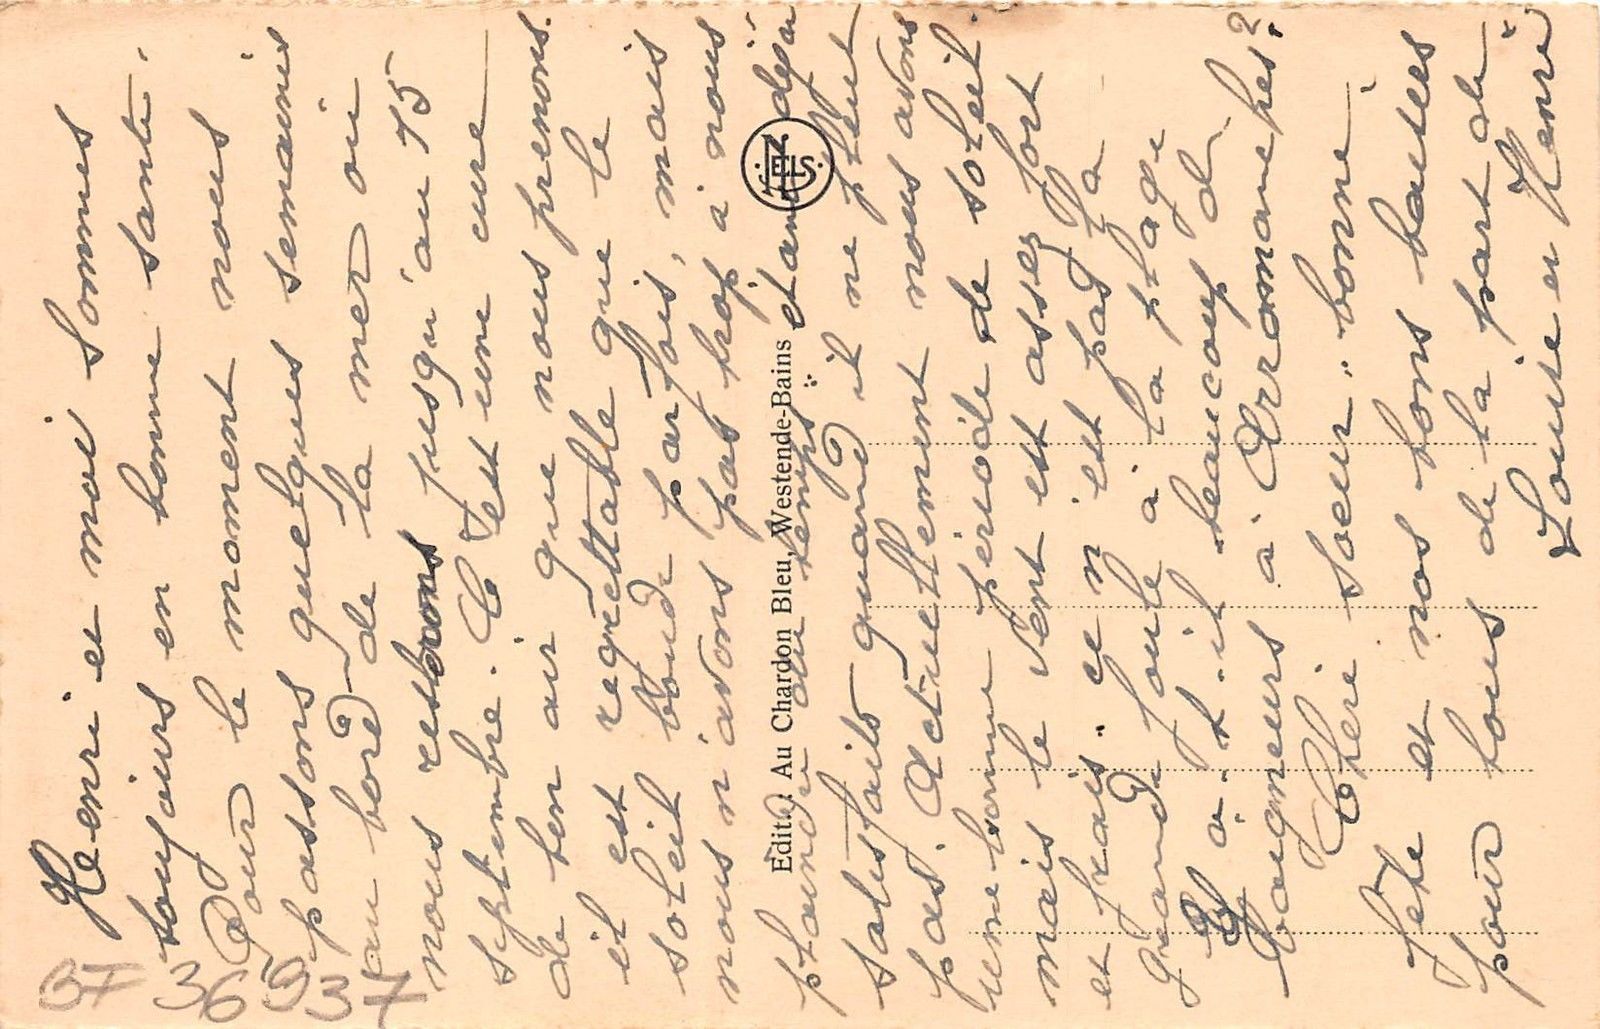 Henri et moi sommes
toujours en bonne santé.
Pour le moment nous
passons quelques semaines
au bord de la mer où
nous restons jusqu'au 15
septembre. C'est une cure
de bon air que nous prenons.
il est regrettable que le
soleil boude parfois, mais
nous n'avons pas trop à nous
plaindre du temps étant déjà
satisfaits quand il ne pleut
pas. Actuellement nous avons
une bonne période de soleil.
mais le vent est assez fort
et frais. ce n'est pas la
grande foule à la plage
Y a-t-il beaucoup de
baigneurs à Arromanches?
Chère soeur. bonne
fête et nos bons baisers
pour tous de la part de
Louise et Henri
Edit.: Au Chardon Bleu, Westende-Bains
NELS.
BT 36593 7